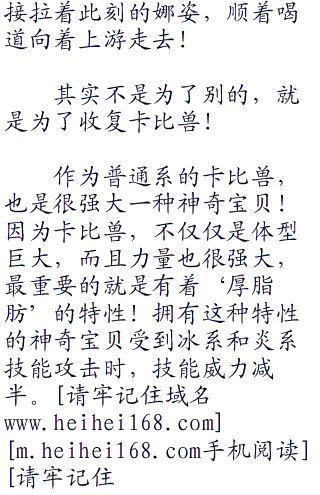 接拉着此刻的娜姿，顺着喝
道向着上游走去！
其实不是为了别的，就
是为了收复卡比兽！
作为普通系的卡比兽，
也是很强大一种神奇宝贝！
因为卡比兽，不仅仅是体型
巨大，而且力量也很强大，
最重要的就是有着‘厚脂
肪’的特性！拥有这种特性
的神奇宝贝受到冰系和炎系
技能攻击时，技能威力减
半。[请牢记住域名
www.heihei168.com]
[m.heihei168.com手机阅读]
[请牢记住